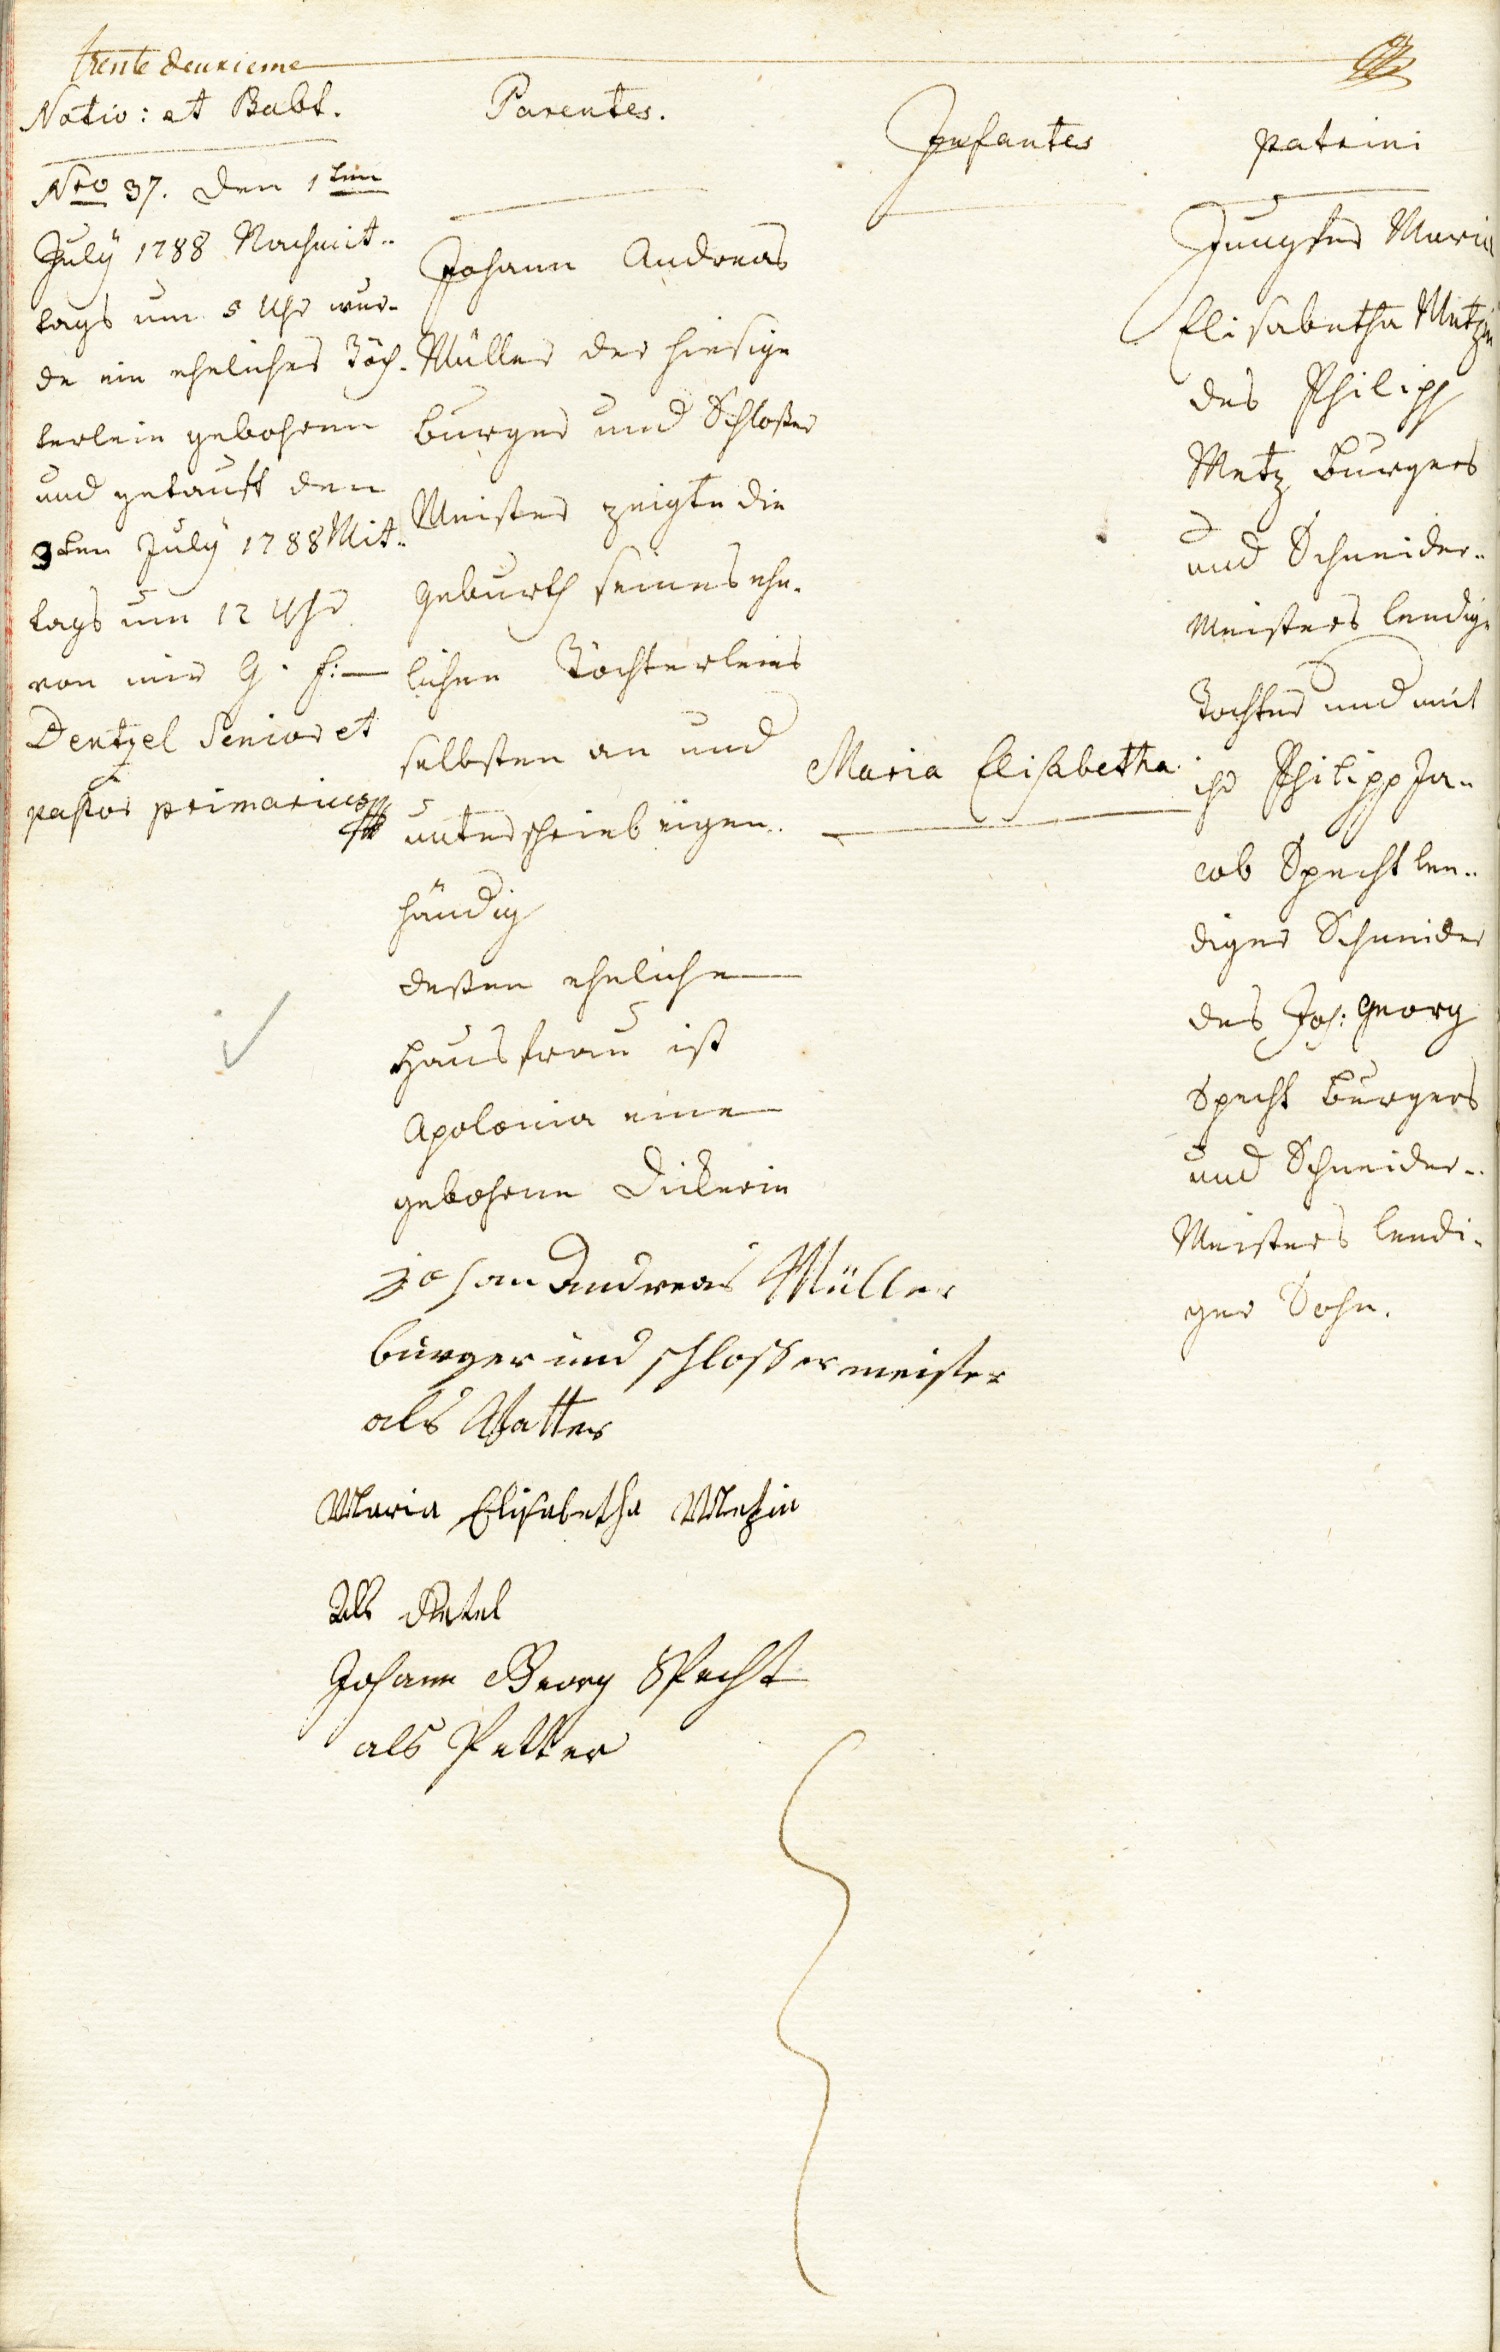 trente deuxieme
Nativ: et Babt.
Nro 37. Den 1ten
July 1788 Nachmit-
tags um 5 Uhr wur-
de ein eheliches Töch-
terlein gebohren
und getauft den
3ten July 1788 Mit-
tags um 12 Uhr
von mir G. f:
Dentzel Senior et
pastor primarius
Parentes.
Johann Andreas
Müller der hiesige
burger und Schloßer
Meister zeigte die
Geburth seines ehe-
lichen Töchterleins
selbsten an und
unterschrieb eigen-
händig
deßen eheliche
Hausfrau ist
Apolonia eine
gebohrne Dickerin
Johan Andreas Müller
burger und schlossermeister
als Vatter
Maria Elisabetha Metzin
Als Getel
Johann Georg Specht
als Petter
Infantes
Maria Elisabetha.
patrini
Jungfer Maria
Elisabetha Metzin
des Philipp
Metz Burgers
und Schneider-
Meisters leedige
Tochter und mit
ihr Philipp Ja-
cob Specht lee-
diger Schneider
des Joh: Georg
Specht Burgers
und Schneider-
Meisters leedi-
ger Sohn.